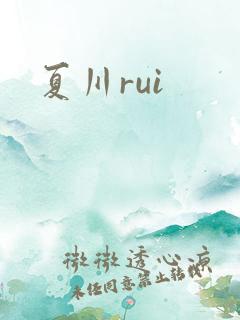 夏川rui
微微透心凉
未经同意禁止转载